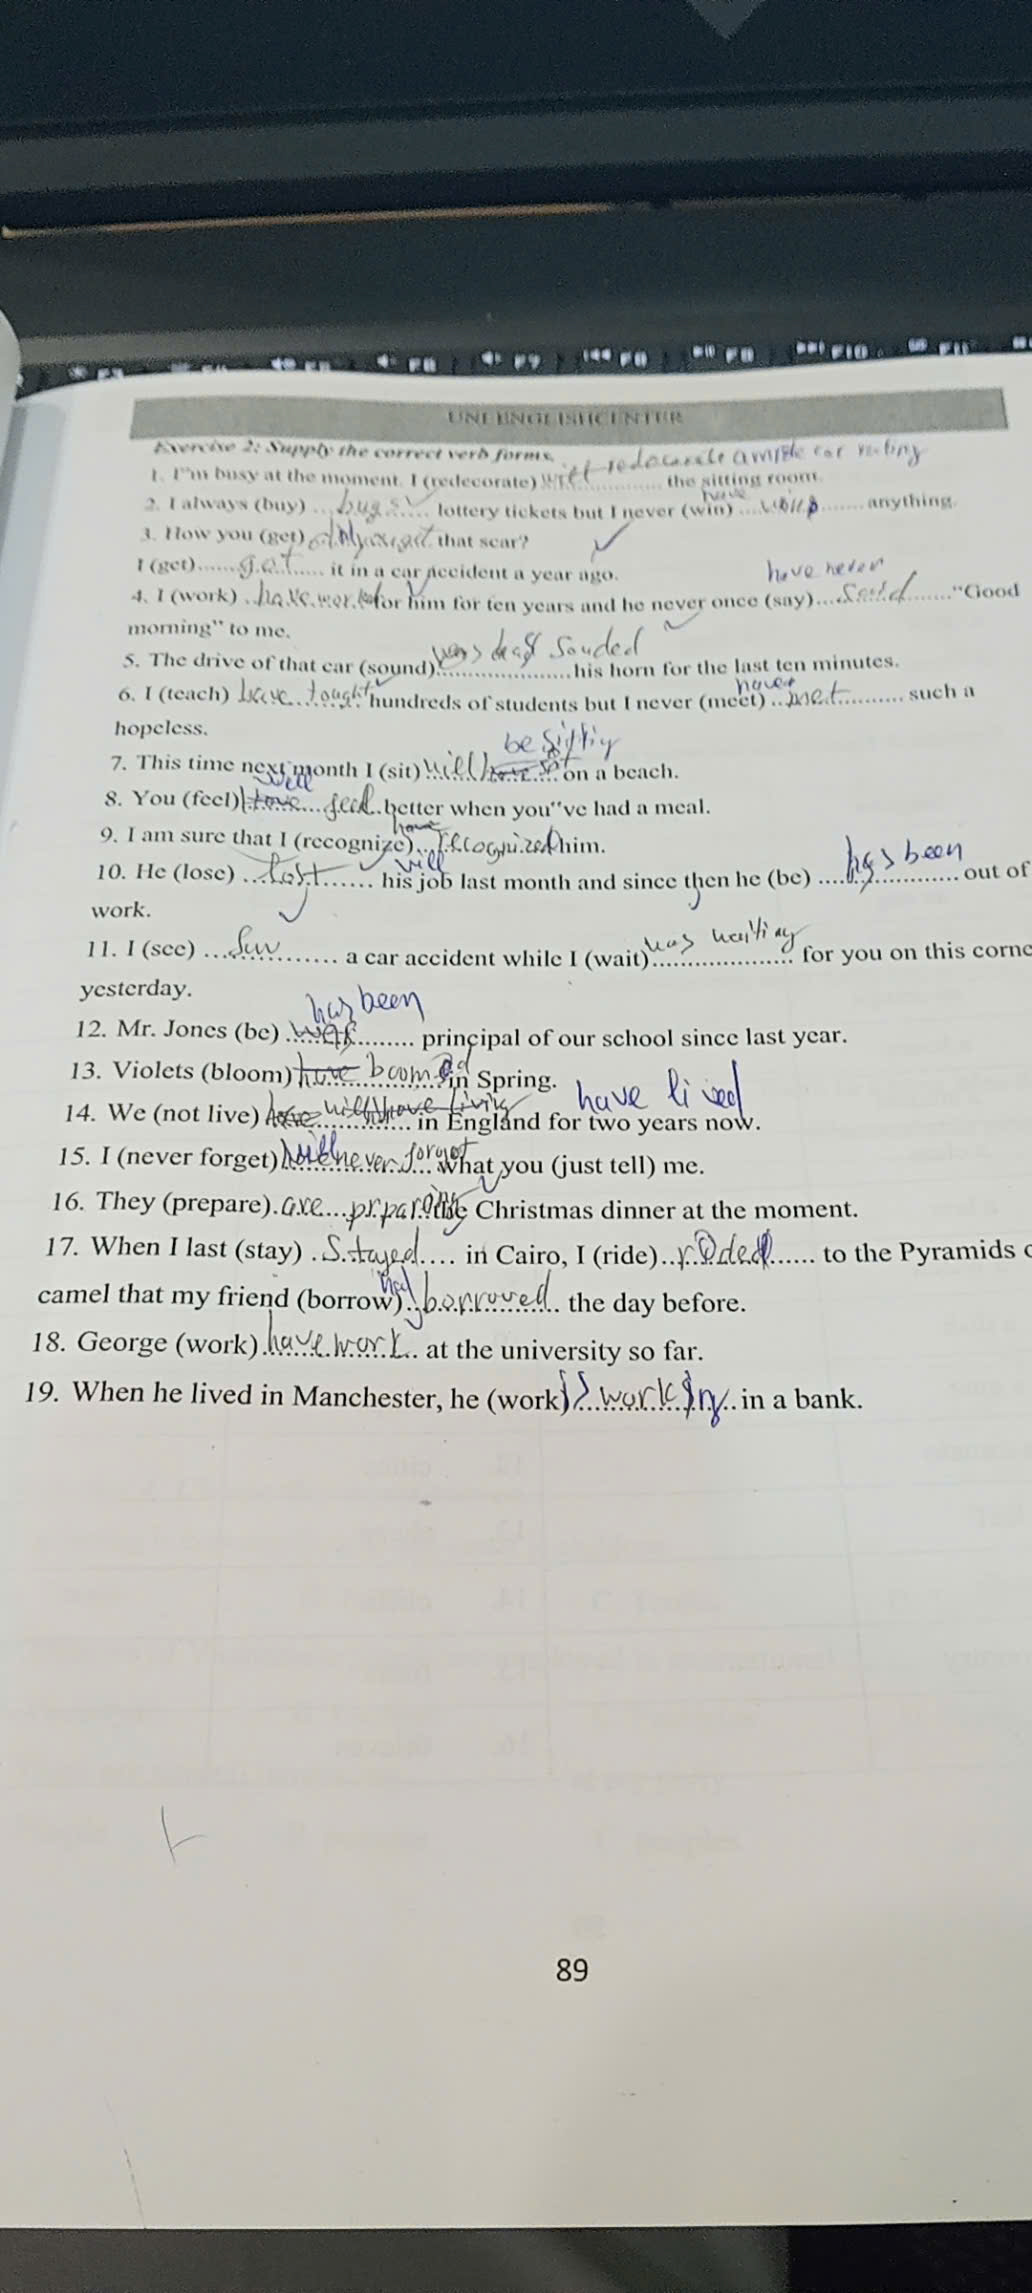 UNI ENGLISHCENTER
Exercise 2: Supply the correct verb forms.
1. I'm busy at the moment. I (redecorate) will redecorate the sitting room.
2. I always (buy) buy lottery tickets but I never (win) have wins anything.
3. How you (get) did you get that scar?
I (get) got it in a car accident a year ago.
have never
4. I (work) have work for him for ten years and he never once (say) said "Good
morning" to me.
5. The drive of that car (sound) was sounded his horn for the last ten minutes.
6. I (teach) have tought hundreds of students but I never (meet) met such a
hopeless.
be sitting
7. This time next month I (sit) will on a beach.
8. You (feel) will feel better when you"ve had a meal.
9. I am sure that I (recognize) recognized him.
will
10. He (lose) lost his job last month and since then he (be) has been out of
work.
11. I (see) saw a car accident while I (wait) was waiting for you on this corne
yesterday.
has been
12. Mr. Jones (be) was principal of our school since last year.
13. Violets (bloom) have boomed in Spring.
14. We (not live) have lived in England for two years now.
15. I (never forget) will never forget what you (just tell) me.
16. They (prepare) are preparing the Christmas dinner at the moment.
17. When I last (stay) stayed in Cairo, I (ride) roded to the Pyramids o
camel that my friend (borrow) had borrowed the day before.
18. George (work) have work at the university so far.
19. When he lived in Manchester, he (work) is working in a bank.
89